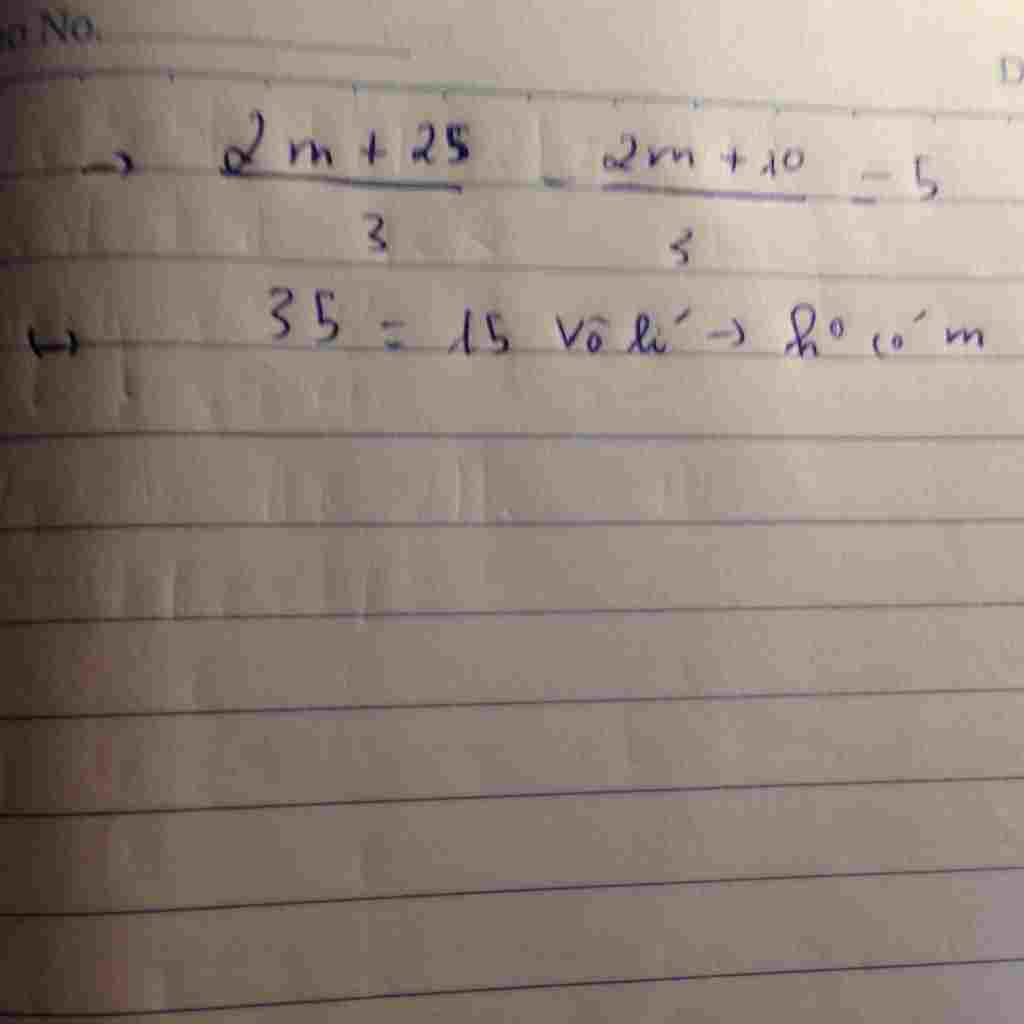 No.
→ (2m + 25)/3 - (2m + 10)/3 = 5
↔ 35 = 15 vô lí → ko có m